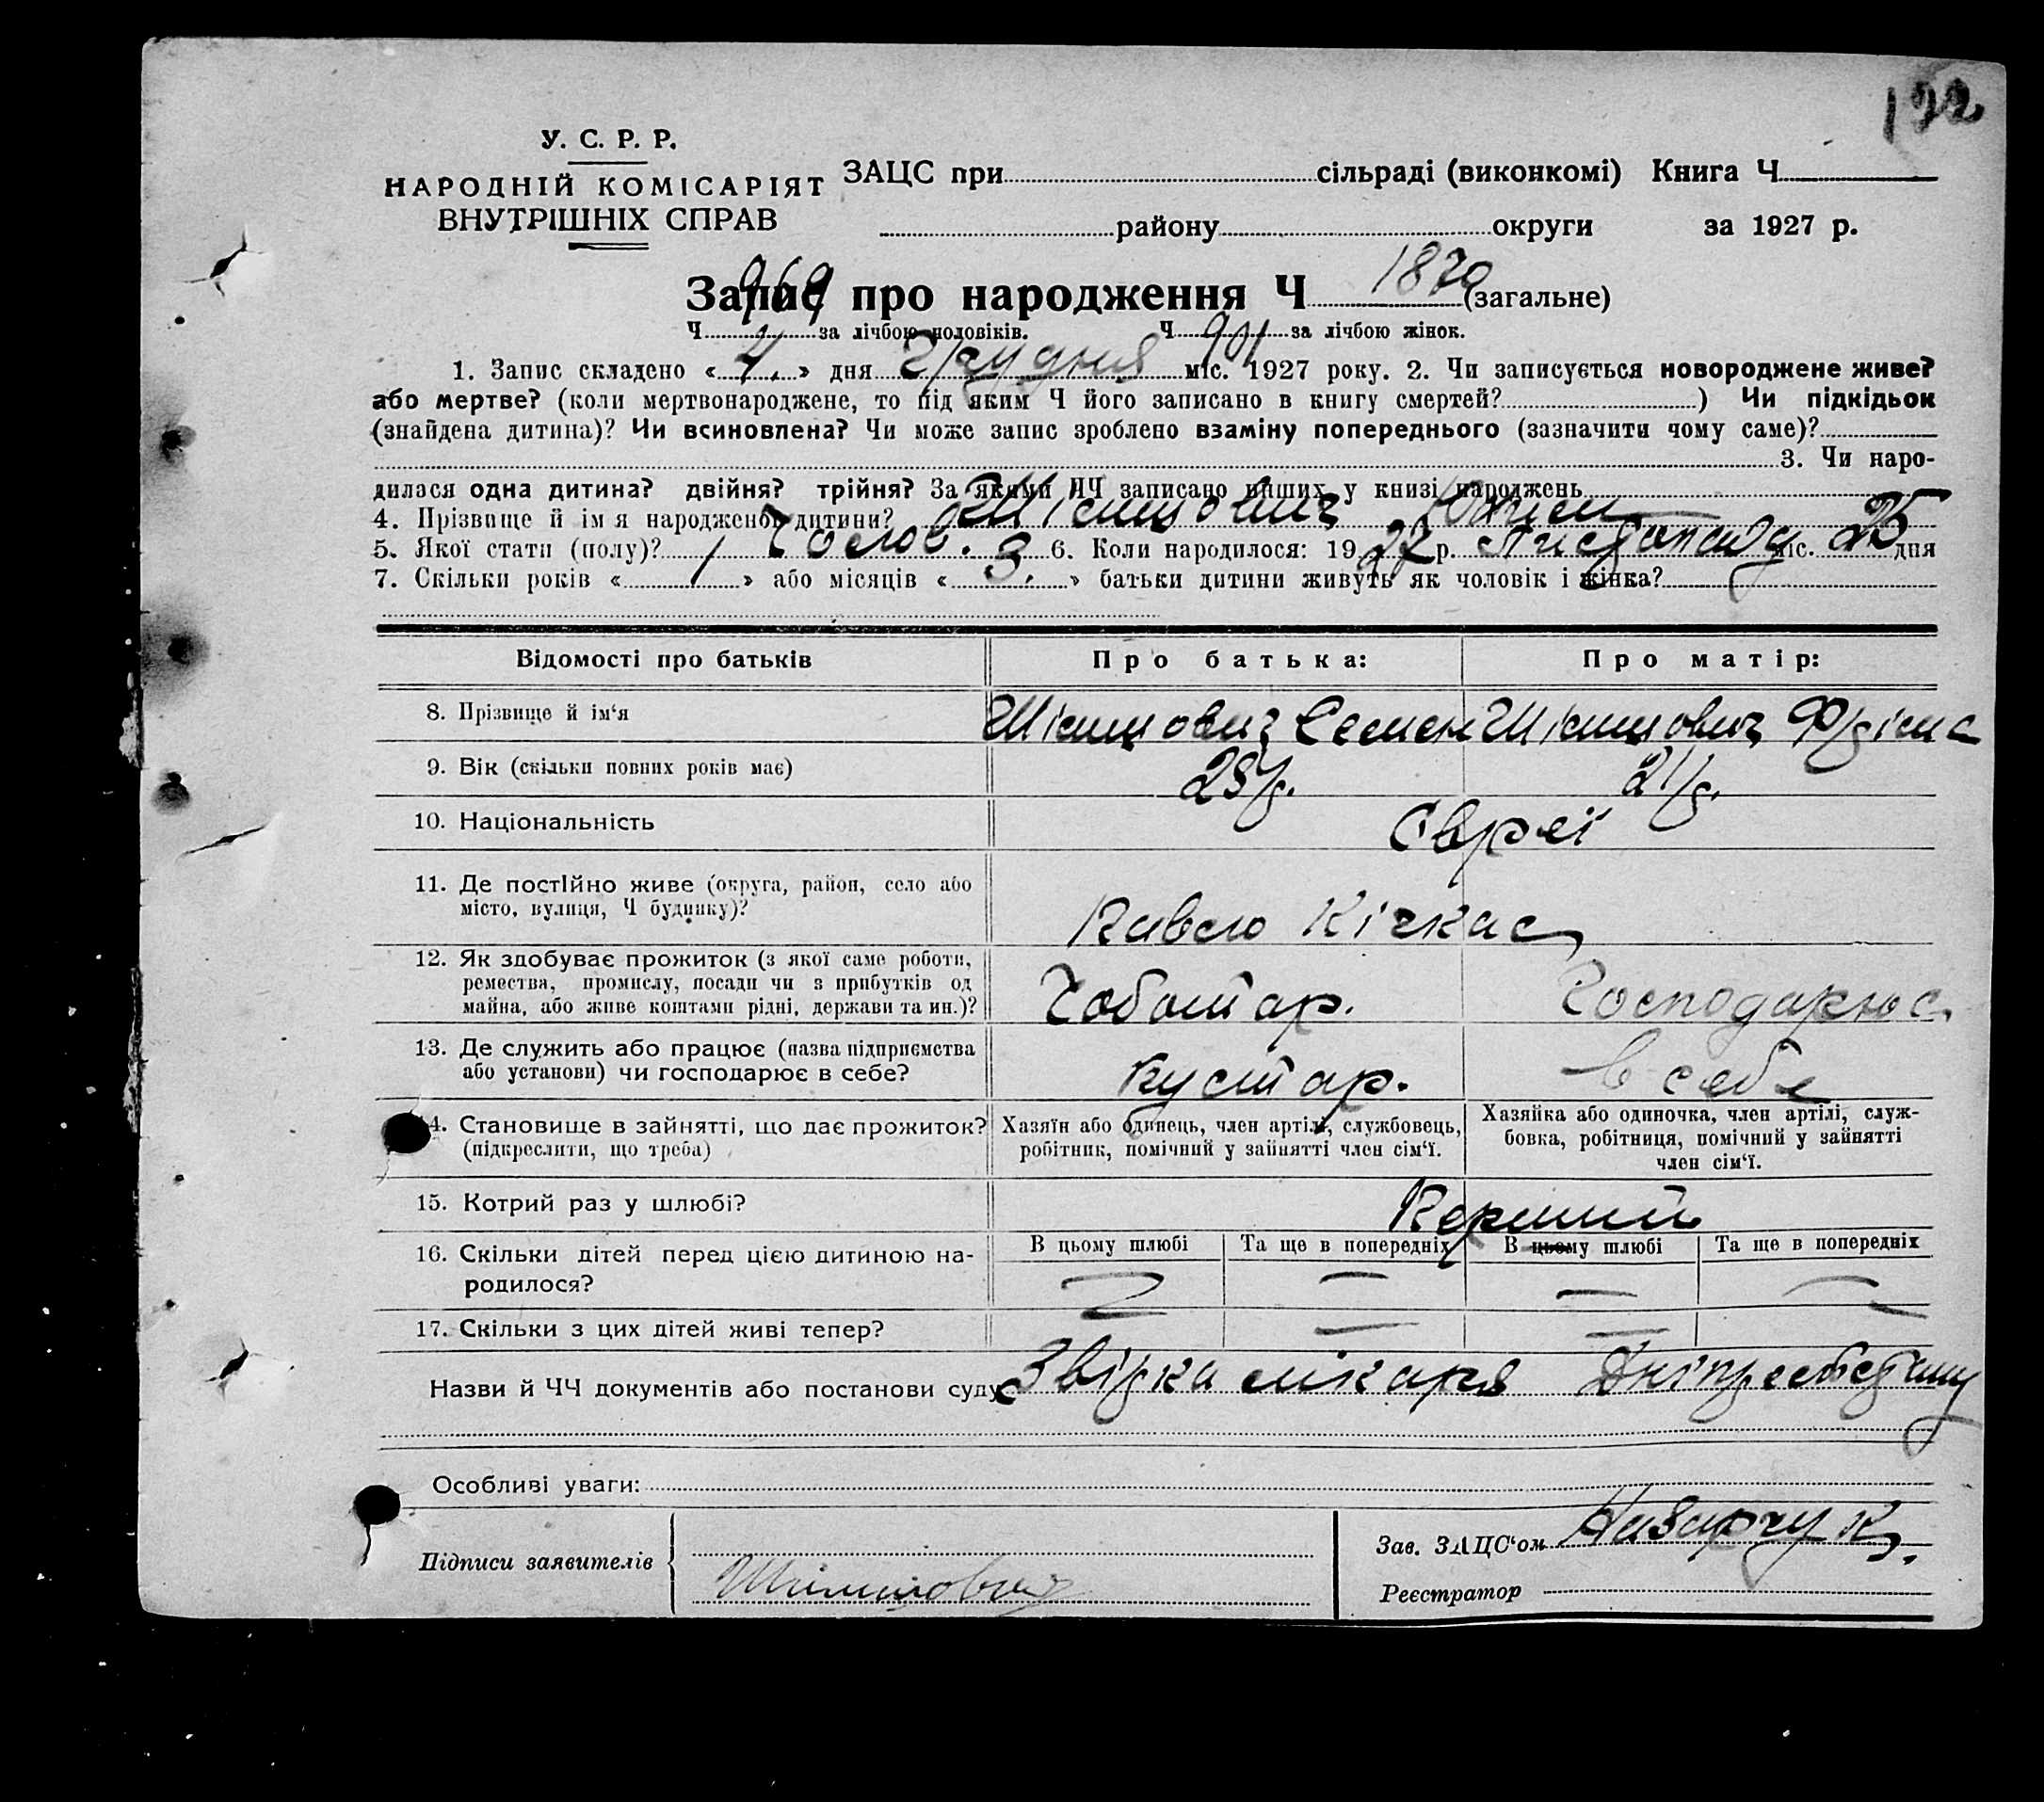 192
У. С. Р. Р.
НАРОДНІЙ КОМІСАРІЯТ
ВНУТРІШНІХ СПРАВ
ЗАЦС при сільраді (виконкомі) Книга Ч
району округи за 1927 р.
Запис про народження Ч 1870 (загальне)
Ч 969 за лічбою чоловіків. Ч 901 за лічбою жінок.
1. Запис складено « 4. » дня Грудня міс. 1927 року. 2. Чи записується новороджене живе?
або мертве? (коли мертвонароджене, то під яким Ч його записано в книгу смертей? ) Чи підкідьок
(знайдена дитина)? Чи всиновлена? Чи може запис зроблено взаміну попереднього (зазначити чому саме)?
3. Чи наро-
дилася одна дитина? двійня? трійня? За якими ЧЧ записано инших у книзі народжень
4. Прізвище й ім я народженої дитини?
5. Якої стати (полу)? Чолов. 6. Коли народилося: 19 27 р. Листопад міс. 25 дня
7. Скільки років « 1 » або місяців « 3. » батьки дитини живуть як чоловік і жінка?
Відомості про батьків Про батька: Про матір:
8. Прізвище й ім‘я Семен
9. Вік (скільки повних років має) 21/р.
10. Національність Євреї
11. Де постІйно живе (округа, район, село або
місто, вулиця, Ч будинку)?
Кічкас
12. Як здобуває прожиток (з якої саме роботи,
ремества, промислу, посади чи з прибутків од
майна, або живе коштами рідні, держави та ин.)?
Чоботар. Господарює
13. Де служить або працює (назва підприємства
або установи) чи господарює в себе?
Кустар. в себе
14. Становище в зайнятті, що дає прожиток?
(підкреслити, що треба)
Хазяїн або одинець, член артілі, службовець,
робітник, помічний у зайнятті член сім‘ї.
Хазяйка або одиночка, член артілі, служ-
бовка, робітниця, помічний у зайнятті
член сім‘ї.
15. Котрий раз у шлюбі? Перший
16. Скільки дітей перед цією дитиною на-
родилося?
В цьому шлюбі Та ще в попередніх В цьому шлюбі Та ще в попередніх
17. Скільки з цих дітей живі тепер?
Назви й ЧЧ документів або постанови суду лікаря
Особливі уваги:
Підписи заявителів
Зав. ЗАЦС‘ом Назарчук
Реєстратор